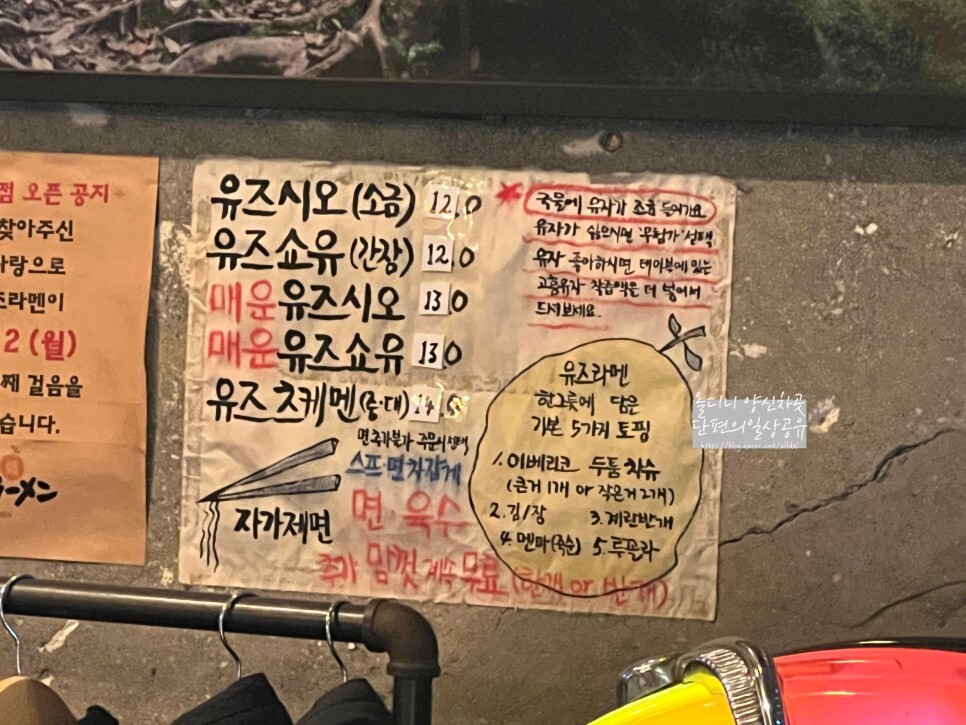 쩜 오픈 공지
찾아주신
사랑으로
즈라멘이
2 (월)
째 걸음을
습니다.
유즈시오 (소금) 12.0
유즈쇼유 (간장) 12.0
매운유즈시오 13.0
매운유즈쇼유 13.0
유즈 츠케멘 (중·대) 14.0
면추가불가 주문시 선택
스프·면 차갑게
자가제면
면 육수
추가 맘껏 계속 무료 (한개 or 반개)
국물에 유자가 조금 들어가요
유자가 싫으시면 '무첨가' 선택
유자 좋아하시면 테이블에 있는
고흥유자 착즙액을 더 넣어서
드셔보세요.
유즈라멘
한그릇에 담은
기본 5가지 토핑
1. 이베리코 두툼 차슈
(큰거 1개 or 작은거 2개)
2. 김/장 3. 계란반개
4. 멘마(죽순) 5. 루꼴라
단편의일상공유